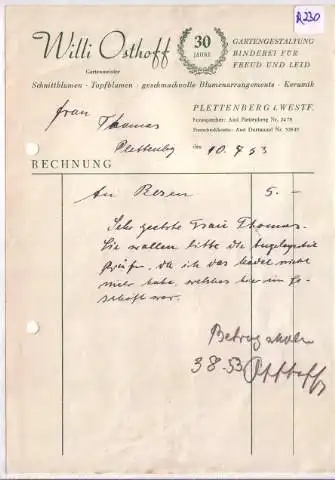 R230
Willi Osthoff
Gartenmeister
30
JAHRE
GARTENGESTALTUNG
BINDEREI FÜR
FREUD UND LEID
Schnittblumen · Topfblumen · geschmackvolle Blumenarrangements · Keramik
PLETTENBERG i. WESTF.
Fernsprecher: Amt Plettenberg Nr. 2478
Postscheckkonto: Amt Dortmund Nr.
Frau
Thomas
Plettenbg
den 10.7 53
RECHNUNG
An Rosen 5.-
Sehr geehrte Frau Thomas.
Sie wollen bitte die Angelegenheit
prüfen, da ich das Mädel nicht
mehr habe, welches hier im Ge-
schäft war.
Betrag
3 8. 53 Osthoff